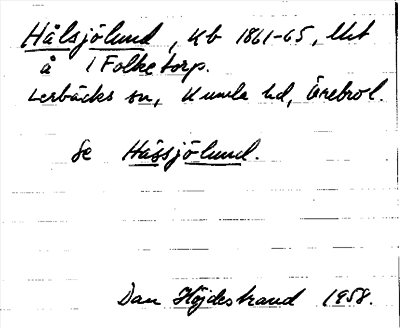 Hålsjölund, Kb 1861-65, Utk
å 1 Folketorp.
Lerbäcks sn, Kumla hd, Örebro l.
Se Håssjölund.
Dan Höjdestrand 1958.